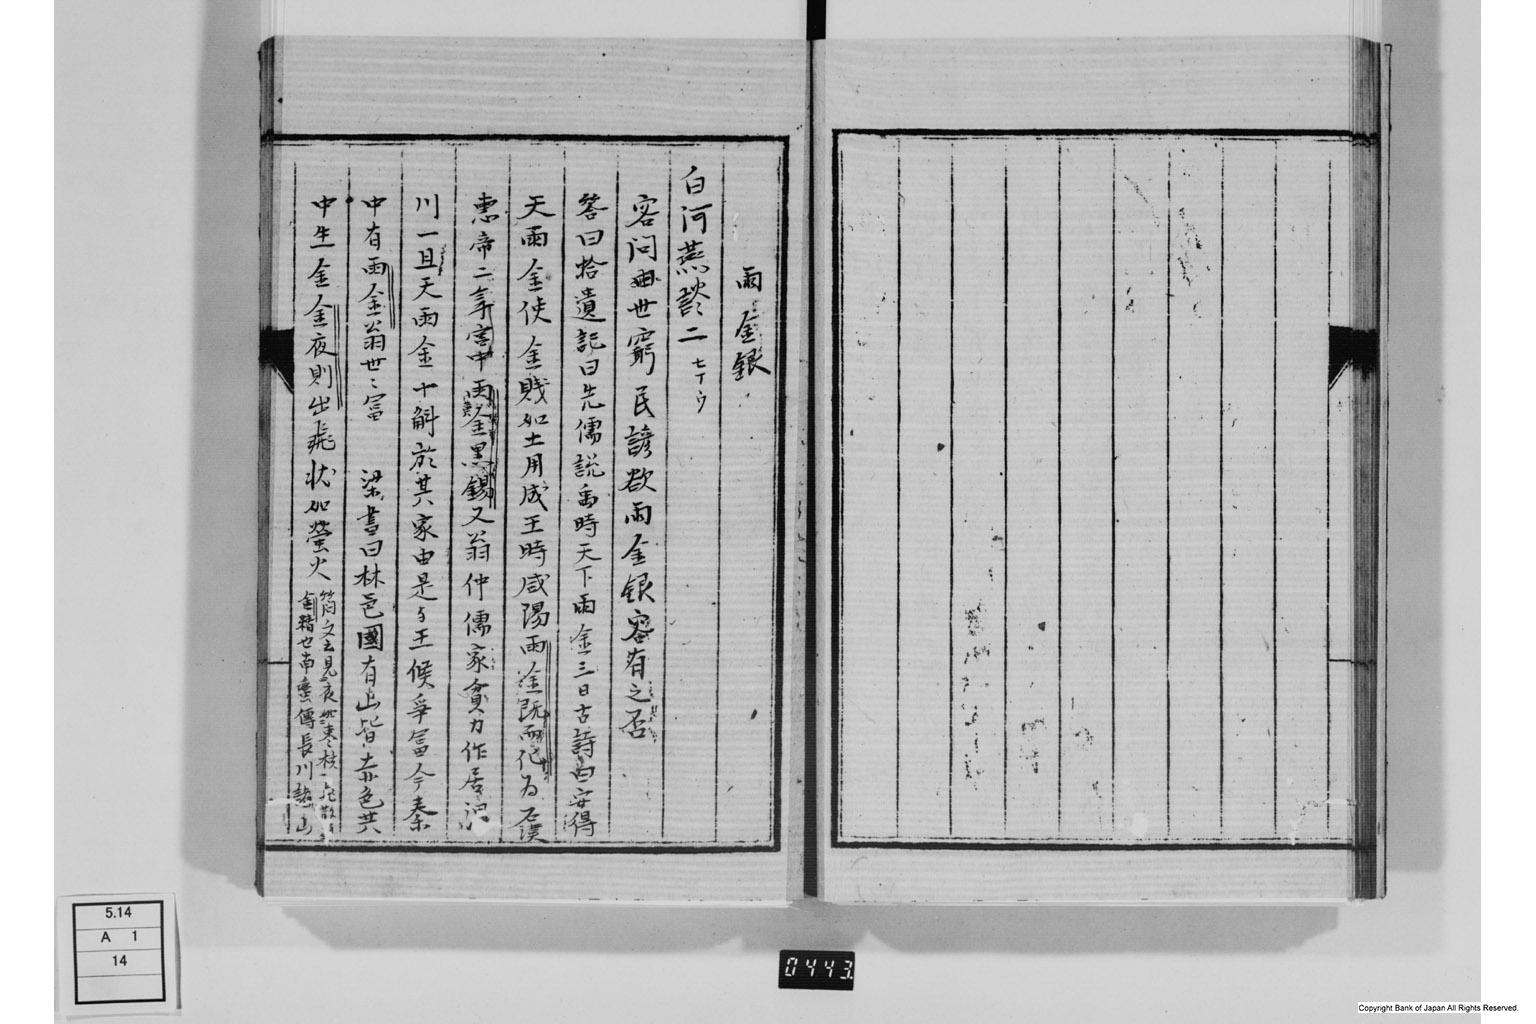 雨金銀
白河燕談二 七丁ウ
客問毎世窮民諺欲雨金銀客有之否
答曰拾遺記曰先儒説禹時天下雨金三日古詩曰安得
天雨金使金賤如土用成王時咸陽雨金既而化為
惠帝二年宮中雨金黒錫又翁仲儒家貧力作居渭
川一旦天雨金十斛於其家由是与王候爭富今秦
中有雨金翁世〻富 梁書曰林邑國有山皆赤色其
中生金金夜則出飛状如螢火
金精也南蛮傳長川諸山
5.14
A 1
14
0443.
Copyright Bank of Japan All Rights Reserved.